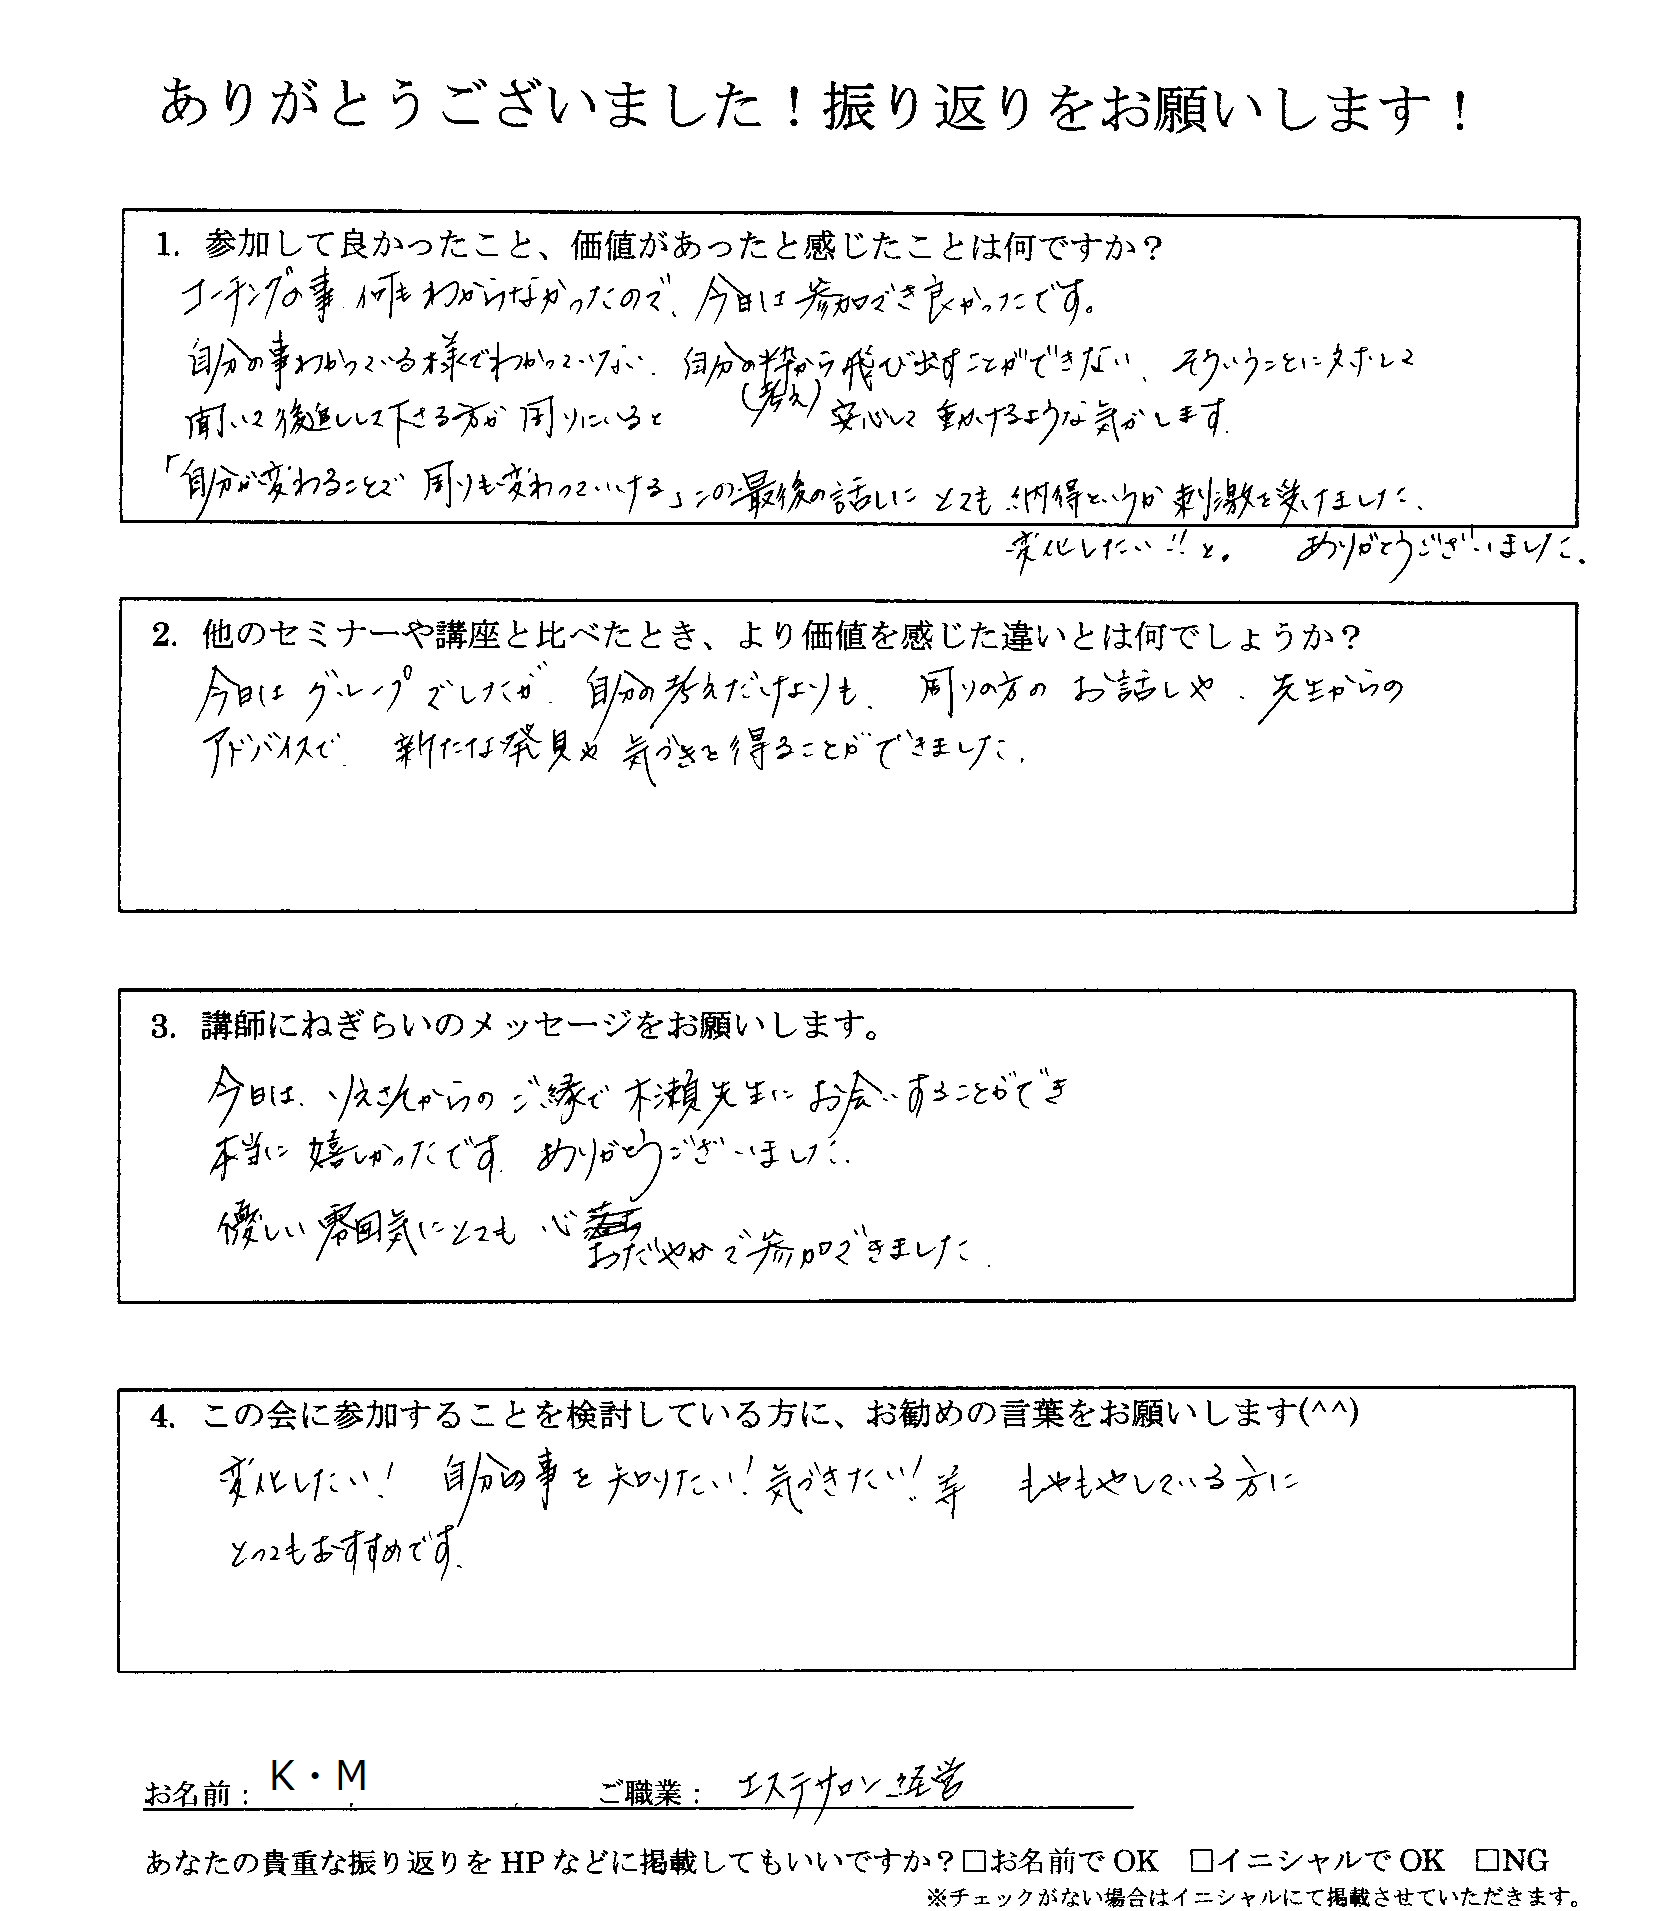 ありがとうございました！振り返りをお願いします！
1. 参加して良かったこと、価値があったと感じたことは何ですか？
コーチングの事、何もわからなかったので、今日は参加でき良かったです。
自分の事わかっている様でわかっていない、自分の枠から飛び出すことができない、そういうことに対して
(考え)
聞いて後追しして下さる方が周りにいると 安心して動けるような気がします。
「自分が変わることで周りも変わっていける」この最後の話しにとても納得というか刺激を受けました。
変化したい!!と。 ありがとうございました。
2. 他のセミナーや講座と比べたとき、より価値を感じた違いとは何でしょうか？
今日はグループでしたが、自分の考えだけよりも、周りの方のお話しや、先生からの
アドバイスで、新たな発見や気づきを得ることができました。
3. 講師にねぎらいのメッセージをお願いします。
今日は、りえさんからのご縁で木瀬先生にお会いすることができ
本当に嬉しかったです。ありがとうございました。
優しい雰囲気にとても心
おだやかで参加できました。
4. この会に参加することを検討している方に、お勧めの言葉をお願いします(^^)
変化したい！ 自分の事を知りたい！気づきたい！等 もやもやしている方に
とってもおすすめです。
お名前： K・M ご職業： エステサロン経営
あなたの貴重な振り返りを HP などに掲載してもいいですか？□お名前で OK □イニシャルで OK □NG
※チェックがない場合はイニシャルにて掲載させていただきます。